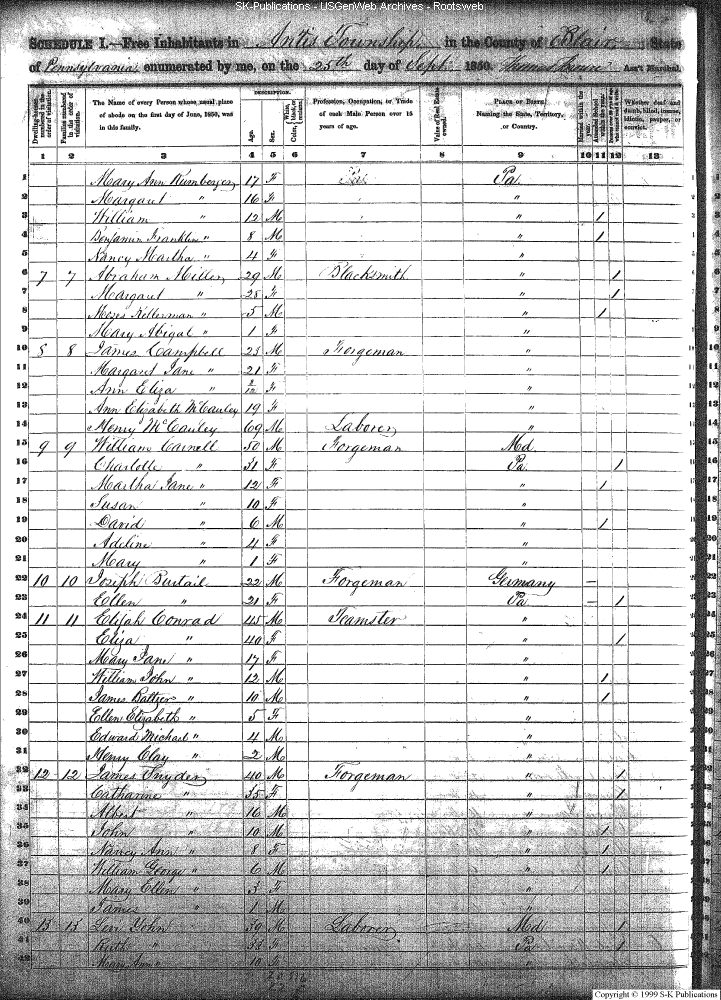 SK-Publications - USGenWeb Archives - Rootsweb
SCHEDULE I.—Free Inhabitants in Antis Township in the County of Blair State
of Pennsylvania enumerated by me, on the 25th day of Sept 1850. Ass't Marshal.
Dwelling-houses numbered in the order of visitation. Families numbered in the order of visitation. The Name of every Person whose usual place of abode on the first day of June, 1850, was in this family. DESCRIPTION. Age. Sex. Color, Profession, Occupation, or Trade of each Male Person over 15 years of age. Value of Real Estate owned. PLACE OF BIRTH. Naming the State, Territory, or Country. Married within the year. Attended School within the year. Whether deaf and dumb, blind, insane, idiotic, pauper, or convict.
1 2 3 4 5 6 7 8 9 10 11 12 13
1 Mary Ann Rumberger 17 F Pa 1
2 Margaret " 16 F " 2
3 William " 12 M " 1 3
4 Benjamin Franklin " 8 M " 1 4
5 Nancy Martha " 4 F " 5
6 7 7 Abraham Miller 29 M Blacksmith " 1 6
7 Margaret " 28 F " 1 7
8 Moses Kellerman " 5 M " 1 8
9 Mary Abigal " 1 F " 9
10 8 8 James Campbell 23 M Forgeman " 10
11 Margaret Jane " 21 F " 11
12 Ann Eliza " F " 12
13 Ann Elizabeth McCauley 19 F " 13
14 Henry McCauley 69 M Laborer " 14
15 9 9 William Carnell 50 M Forgeman Md 15
16 Charlotte " 31 F Pa 1 16
17 Martha Jane " 12 F " 1 17
18 Susan " 10 F " 18
19 David " 6 M " 1 19
20 Adeline " 4 F " 20
21 Mary " 1 F " 21
22 10 10 Joseph Burtail 22 M Forgeman Germany – 22
23 Ellen " 21 F Pa – 1 23
24 11 11 Elijah Conrad 45 M Teamster " 24
25 Eliza " 40 F " 1 25
26 Mary Jane " 17 F " 26
27 William John " 12 M " 1 27
28 James Baltzer " 10 M " 1 28
29 Ellen Elizabeth " 5 F " 29
30 Edward Michael " 4 M " 30
31 Henry Clay " 2 M " 31
32 12 12 James Snyder 40 M Forgeman " 1 32
33 Catharine " 35 F " 1 33
34 Albert " 16 M " 34
35 John " 10 M " 1 35
36 Nancy Ann " 8 F " 1 36
37 William George " 6 M " 1 37
38 Mary Ellen " 3 F " 38
39 James " 1 M " 39
40 13 13 Levi Yohn 39 M Laborer Md 1 40
41 Ruth " 33 F Pa 1 41
42 Mary Ann " 10 F " 42
Copyright © 1999 S-K Publications